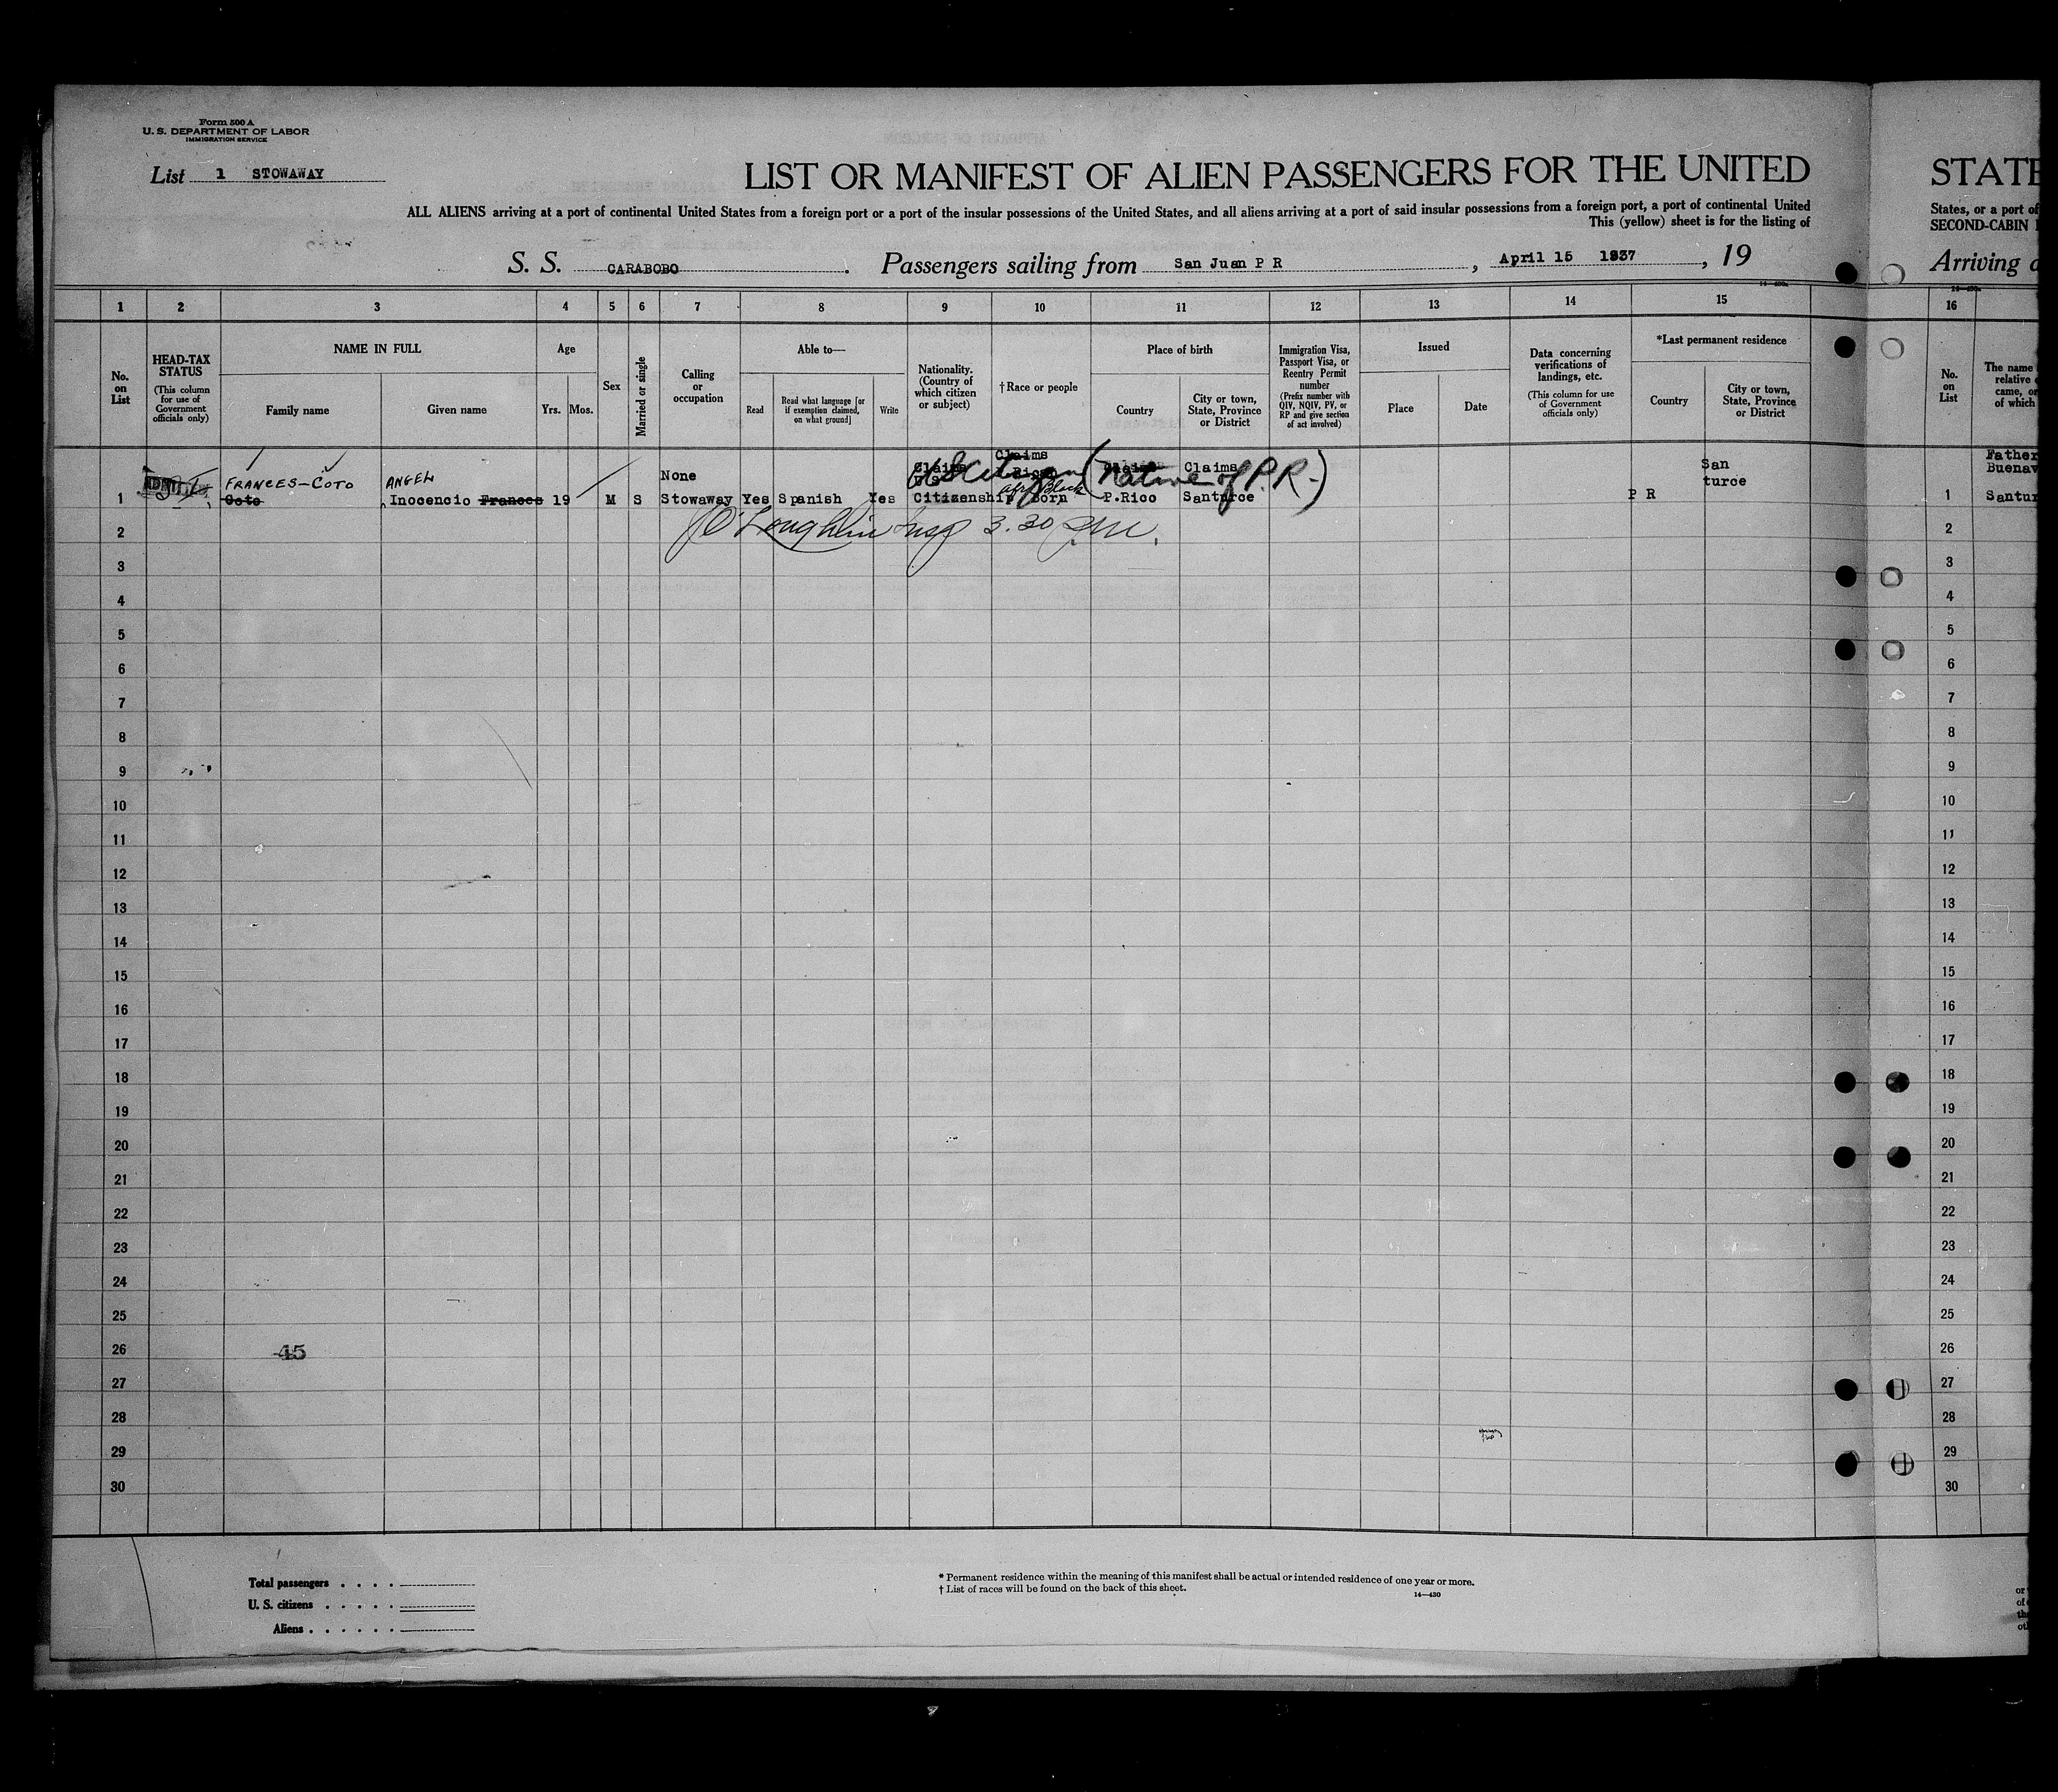 Form 500 A
U. S. DEPARTMENT OF LABOR
IMMIGRATION SERVICE
List 1 STOWAWAY
LIST OR MANIFEST OF ALIEN PASSENGERS FOR THE UNITED
STATE
ALL ALIENS arriving at a port of continental United States from a foreign port or a port of the insular possessions of the United States, and all aliens arriving at a port of said insular possessions from a foreign port, a port of continental United
States, or a port of
This (yellow) sheet is for the listing of
SECOND-CABIN
S. S. CARABOBO. Passengers sailing from San Juan P R, April 15 1937, 19
Arriving
1 2 3 4 5 6 7 8 9 10 11 12 13 14 15 16
No. on List
HEAD-TAX STATUS
(This column for use of Government officials only)
NAME IN FULL
Family name
Given name
Age
Yrs. Mos.
Sex
Married or single
Calling or occupation
Able to—
Read
Read what language [or if exemption claimed, on what ground]
Write
Nationality. (Country of which citizen or subject)
†Race or people
Place of birth
Country
City or town, State, Province or District
Immigration Visa, Passport Visa, or Reentry Permit number
(Prefix number with QIV, NQIV, PV, or RP and give section of act involved)
Issued
Place
Date
Data concerning verifications of landings, etc.
(This column for use of Government officials only)
*Last permanent residence
Country
City or town, State, Province or District
No. on List
The name
relative
came, or
of which
FRANCES-COTO ANGEL
None Claims Claims Claims San turce
US Citizen (Native of P.R.)
1 Coto Inocencio Frances 19 M S Stowaway Yes Spanish Yes Citizenship Born P.Rico Santurce P R
Afr Black
Father
Buenav
1 Santur
O'Loughlin Insp 3.30 PM.
2 2
3 3
4 4
5 5
6 6
7 7
8 8
9 9
10 10
11 11
12 12
13 13
14 14
15 15
16 16
17 17
18 18
19 19
20 20
21 21
22 22
23 23
24 24
25 25
26 45 26
27 27
28 28
29 29
30 30
Total passengers . . . .
U. S. citizens . . . . .
Aliens . . . . . .
* Permanent residence within the meaning of this manifest shall be actual or intended residence of one year or more.
† List of races will be found on the back of this sheet.
14—430